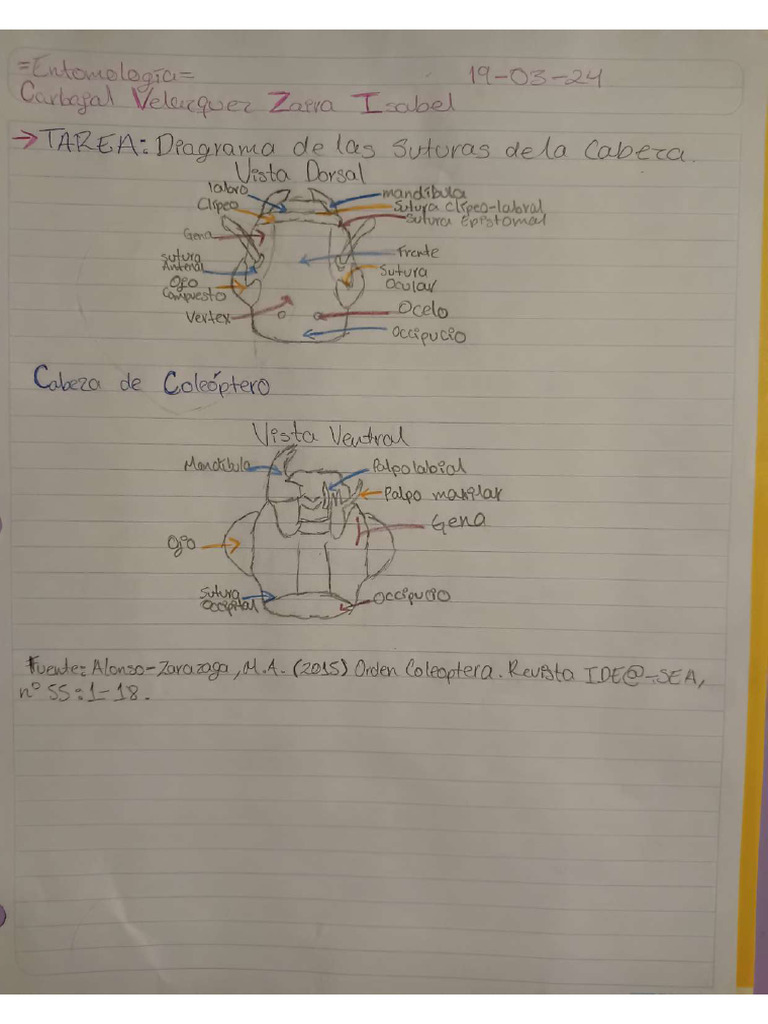 =Entomología=
19-03-24
Carbajal Velazquez Zaira Isabel
→ TAREA: Diagrama de las Suturas de la Cabeza.
Vista Dorsal
labro
mandíbula
Clípeo
Sutura Clípeo-labral
Sutura Epistomal
Gena
Frente
Sutura Antenal
Sutura Ocular
Ojo Compuesto
Ocelo
Vertex
Occipucio
Cabeza de Coleóptero
Vista Ventral
Mandíbula
Palpo labial
Palpo maxilar
Gena
Ojo
Sutura Occipital
Occipucio
Fuente: Alonso-Zarazaga, M.A. (2015) Orden Coleoptera. Revista IDE@-SEA,
nº 55:1-18.